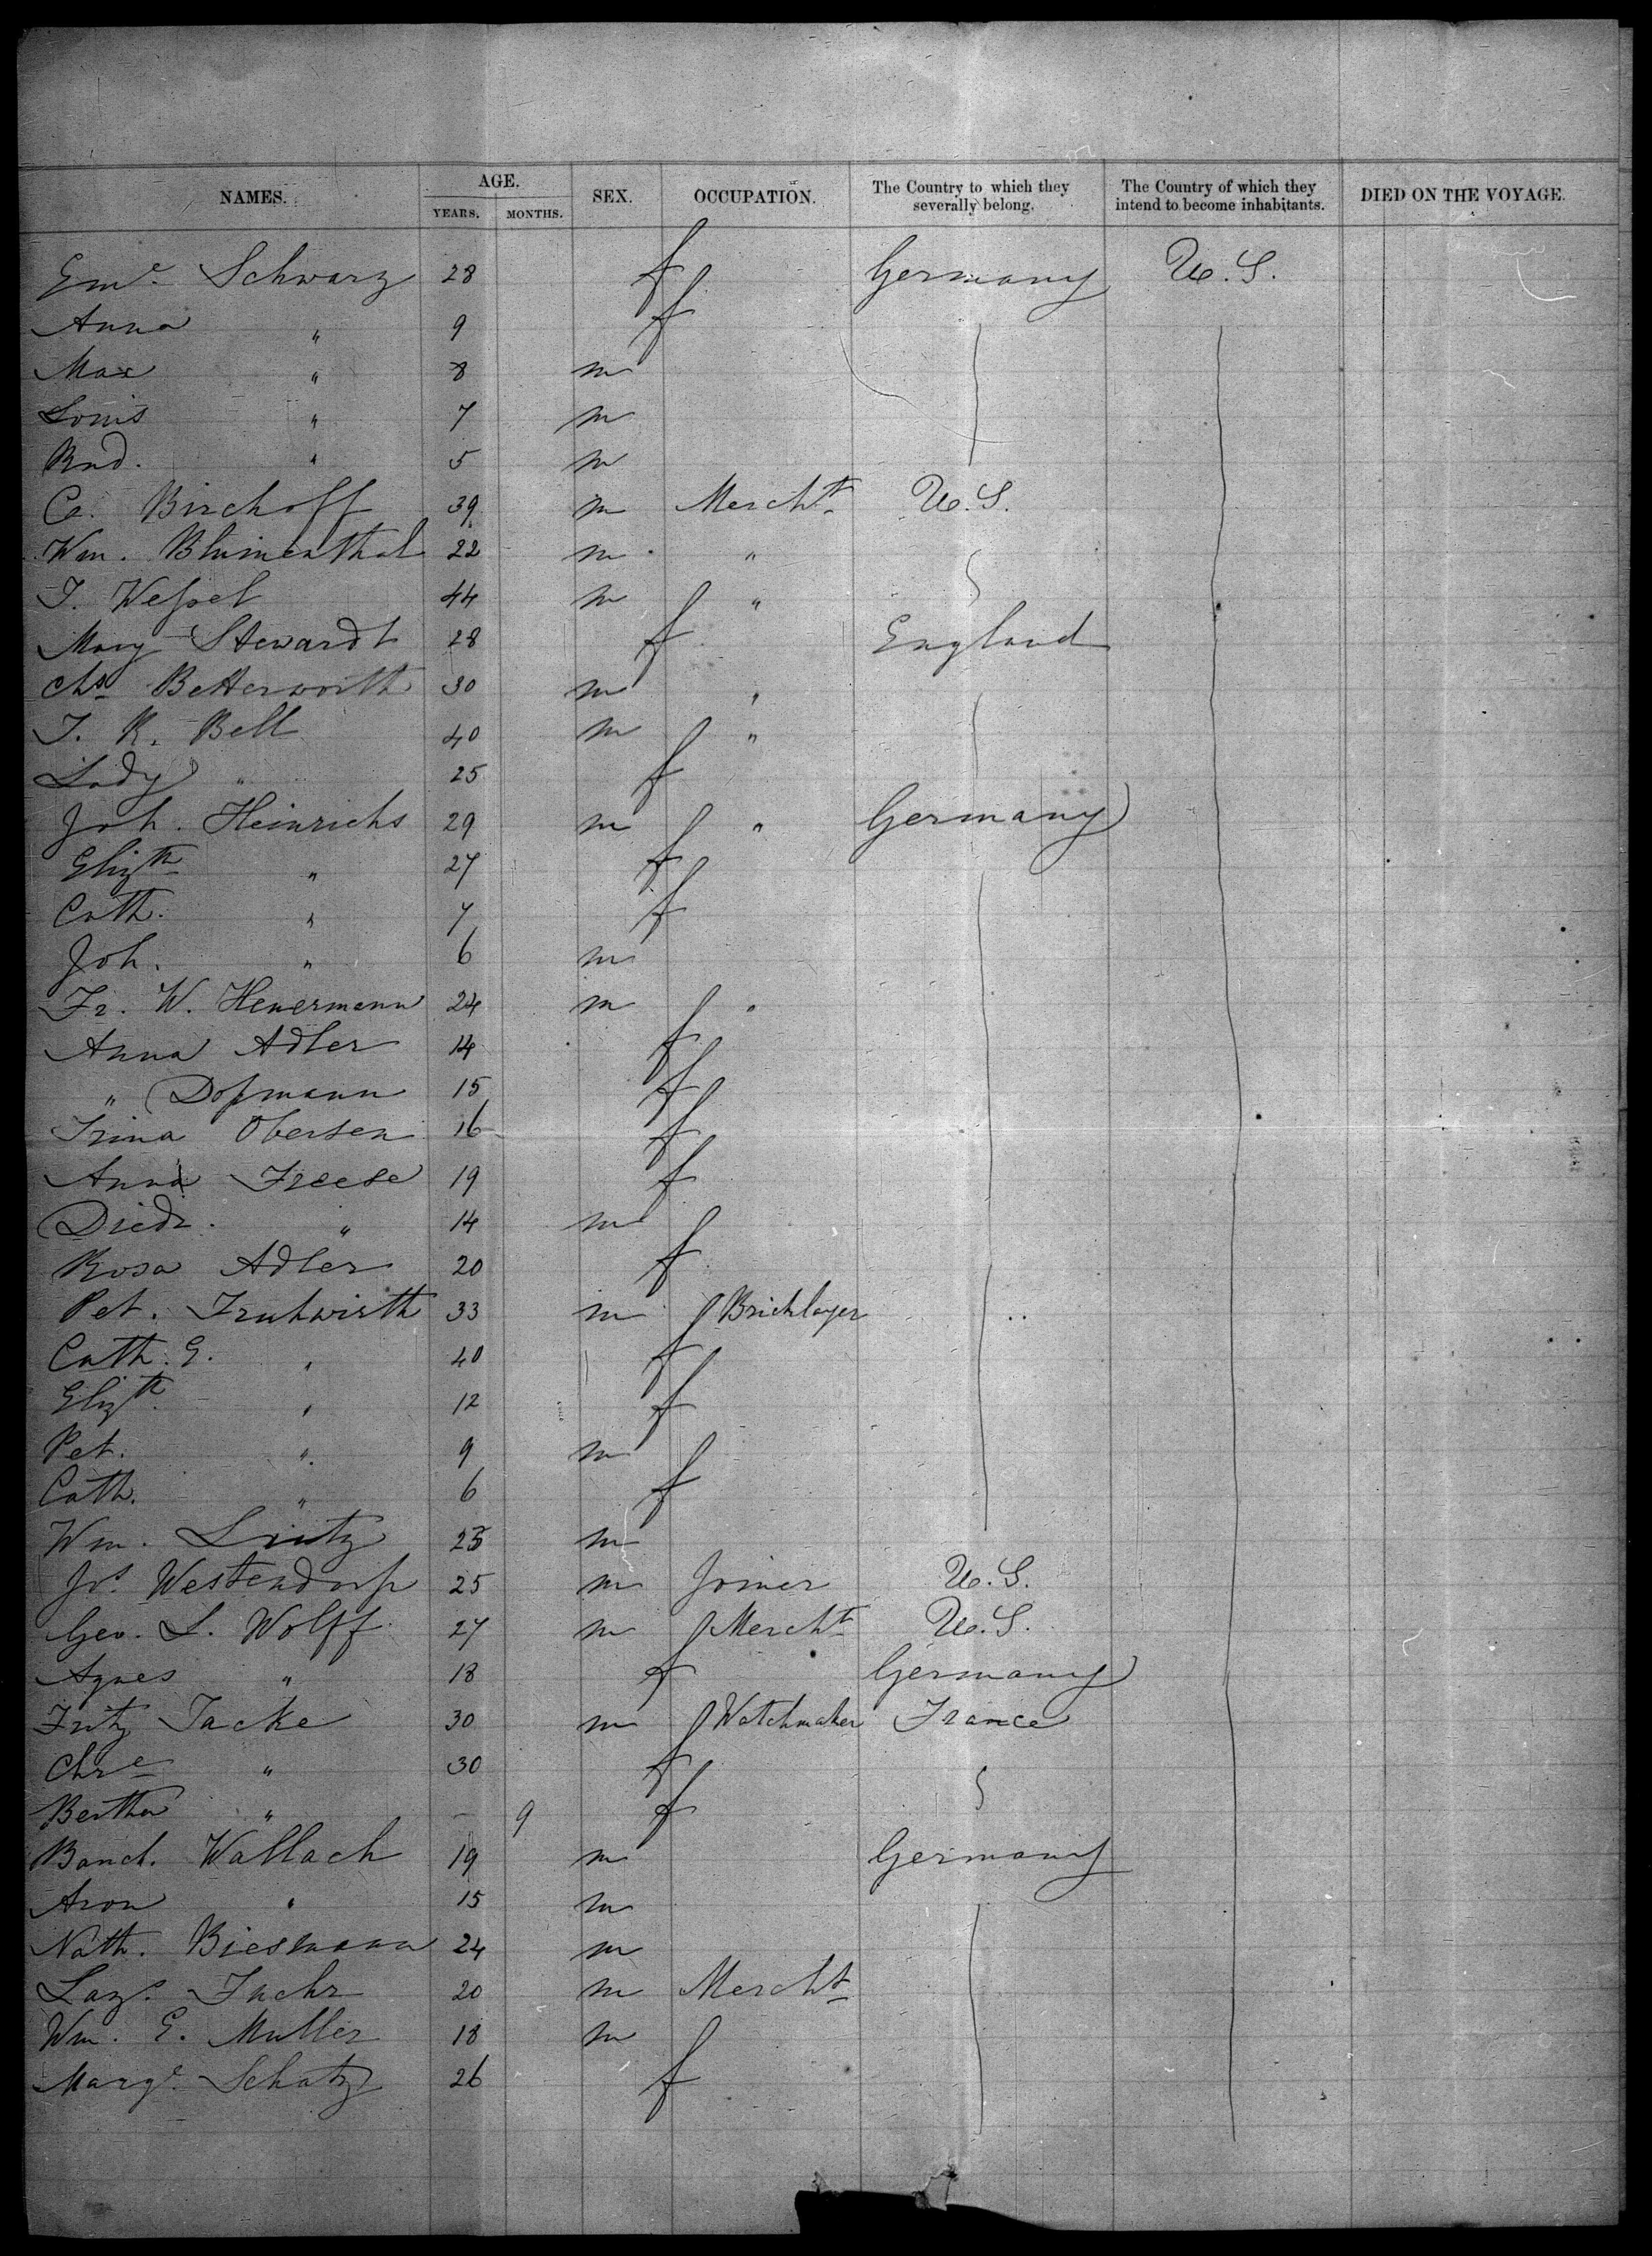 NAMES. AGE. SEX. OCCUPATION. The Country to which they severally belong. The Country of which they intend to become inhabitants. DIED ON THE VOYAGE.
YEARS. MONTHS.
Eme. Schwarz 28 f Germany U.S.
Anna " 9 f
Max " 8 m
Louis " 7 m
Rud. " 5 m
Co. Birchoff 39 m Mercht U.S.
Wm. Blumenthal 22 m "
J. Wessel 44 m "
Mary Stewardt 28 f England
Chs Betterworth 30 m "
J. R. Bell 40 m "
Lady " 25 f
Joh. Heinrichs 29 m " Germany
Elizth " 27 f
Cath. " 7 f
Joh. " 6 m
Fr. W. Heuermann 24 m "
Anna Adler 14 f
" Dossmann 15 f
Trina Obersen 16 f
Anna Freese 19 f
Diedr. " 14 m
Rosa Adler 20 f
Pet. Fruhwirth 33 m Bricklayer
Cath. E. " 40 f
Elizth " 12 f
Pet. " 9 m
Cath. " 6 f
Wm. 25 m
Jos. Westendorp 25 m Joiner U.S.
Geo. L. Wolff 27 m Mercht U.S.
Agnes " 18 f Germany
Fritz Tacke 30 m Watchmaker France
Chre " 30 f
Bertha " - 9 f
Wallach 19 m Germany
Aron " 15 m
Nath. Biesmann 24 m
Laz. 20 m Mercht
Wm. E. Muller 18 m
Marge. Schatz 26 f